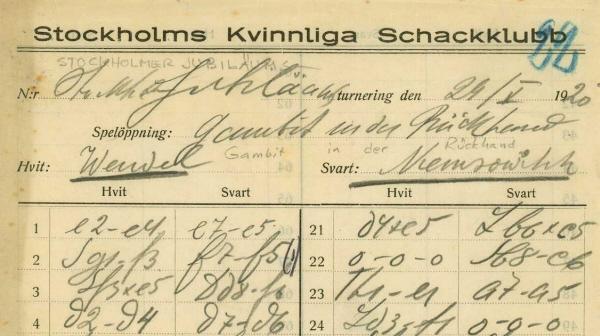 Stockholms Kvinnliga Schackklubb
22
STOCKHOLMER JUBILÄUMS
N:r Jubiläum turnering den 24/X 1920
Spelöppning: Gambit in der Rückhand
Gambit in der Rückhand
Hvit: Wendel Svart: Niemzowitsch
Hvit Svart Hvit Svart
1 e2-e4 e7-e5 21 d4xe5 Lb6xc5
2 Sg1-f3 f7-f5(!) 22 0-0-0 Sb8-c6
3 Sf3xe5 Dd8-f6 23 Th1-e1 a7-a5
4 d2-d4 d7-d6 24 Ld3-f1 0-0-0